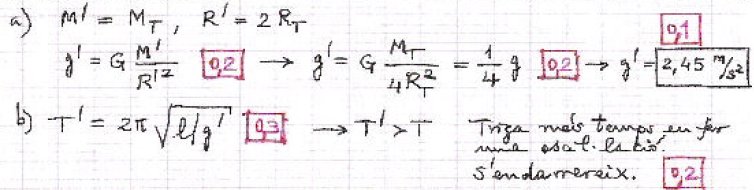 a) M' = M_T, R' = 2 R_T
0,1
g' = G M'/R'² 0,2 → g' = G M_T/4R_T² = 1/4 g 0,2 → g' = 2,45 m/s²
b) T' = 2π √l/g' 0,3 → T' > T Triga més temps en fer
una osal·lació.
S'endarrereix. 0,2